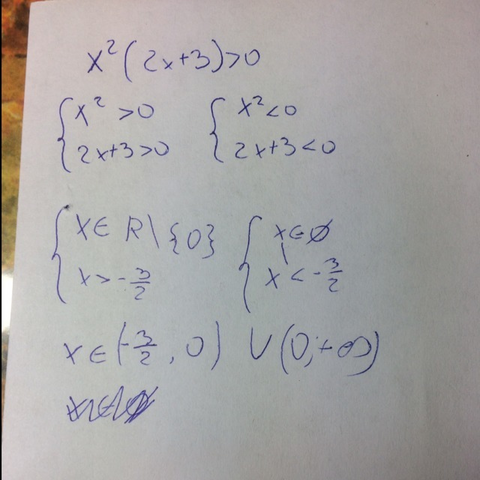 x²(2x+3)>0
{ x²>0 { x²<0
{ 2x+3>0 { 2x+3<0
{ x∈ R\{0} { x∈∅
{ x>-3/2 { x<-3/2
x∈(-3/2, 0) ∪ (0;+∞)